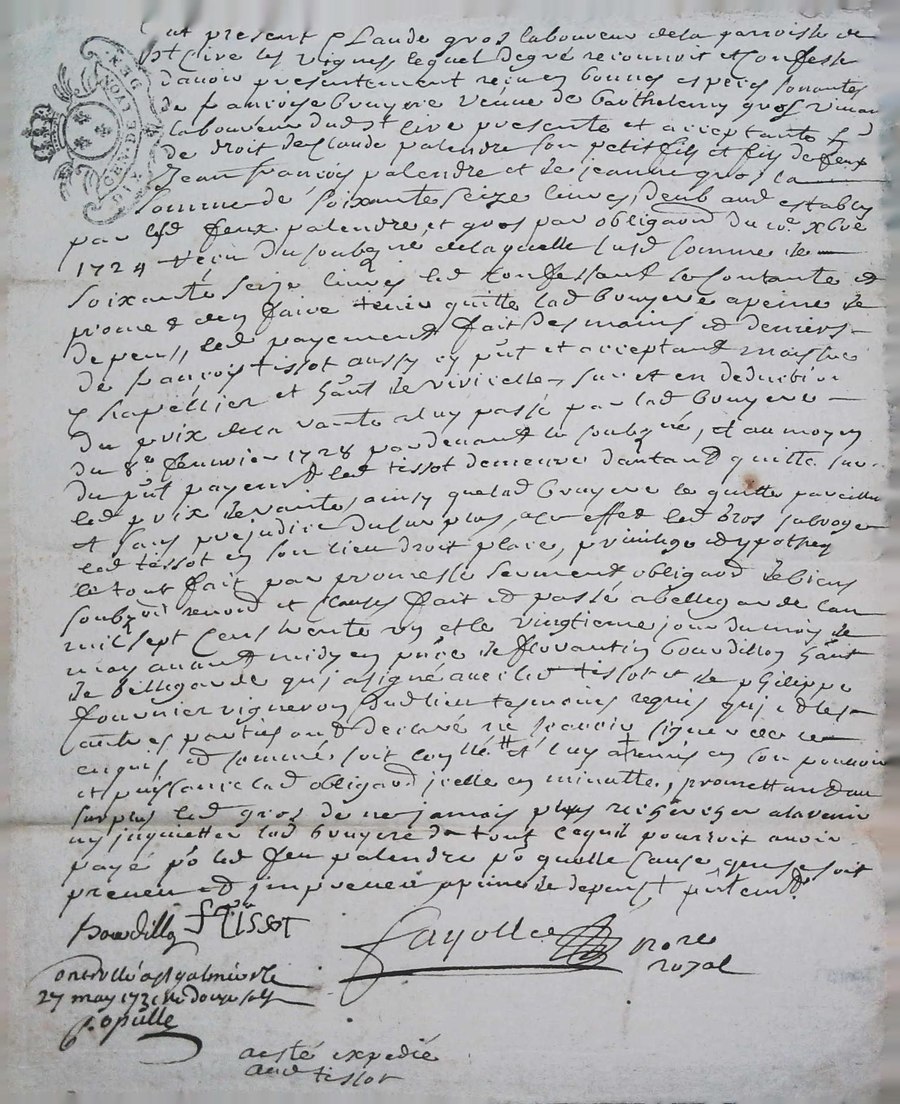 GEN. DE LYON
DIX DEN
fut present Claude gros laboureur de la parroisse de
St Cire les Vignes lequel de gré reconnoit et confesse
d'avoir presentement reçu en bonnes especes sonantes
de francoise bruyere veuve de barthelemy gros vivant
laboureur dud St Cire presente et acceptante
de droit de Claude palendre son petit fils et fils de feux
Jean francois palendre et de jeanne gros la
somme de soixante seize livres, deub aud establis
par lesd feux palendre et gros par obligaõn du xbre
1724 reçu du soubsne de laquelle susd somme de
soixante seize livres led confessant se contante et
promet d'en faire tenir quitte lad bruyere a peine de
depens, led payement fait des mains et deniers
de françois tissot aussy cy pnt et acceptant maistre
chapellier et hãnt de vivicelles sur et en deduction
du prix de la vante a luy passé par lad bruyere
du 8e fevrier 1728 pardevant le soubsné, et au moyen
du pnt payemt led tissot demeure d'autand quitte sur
led prix de vante, ainsy que lad bruyere le quitte pareillem
et sans prejudice du surplus, a ce effet led gros subroge
led tissot en son lieu droit place, privilege et ypotheq
le tout fait par promesse serment, obligaõn de biens
renonõn et clauses fait et passé a bellegarde l'an
mil sept cens trente un et le vingtieme jour du mois de
may avant midy en pñce de florantin bourdillon hãnt
de bellegarde qui a signé avec led tissot et de philippe
fournier vigneron dud lieu tesmoins requis qui et les
autres parties ont declaré ne scavoir signer de ce
enquis et sommés soit conllé et luy a remis en son pouvoir
et puissance lad obligaõn icelle en minutte, promettand au
surplus led gros de ne jamais plus rechercher a l'avenir
ny inquietter lad bruyere de tout ce qu'il pourroit avoir
payé po led feu palendre po quelle cause que ce soit
preveu et impreveu a peine de depens,
bourdillon f tissot
fayolle nore
royal
Controllé a St galmier le
27 may 1731 douze sols
Populle
a esté expedié
aud tissot